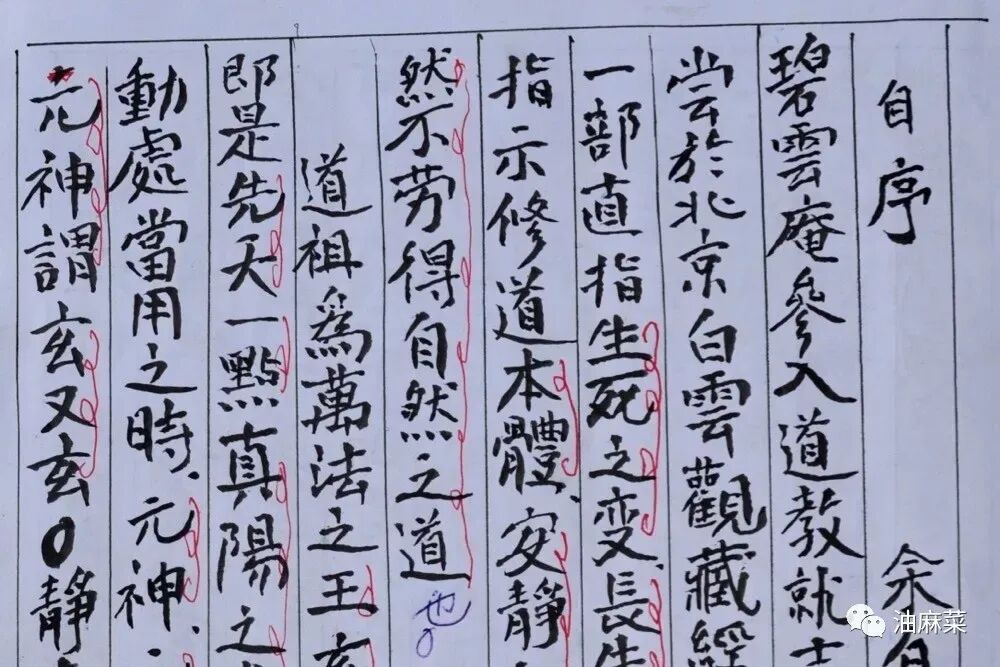 自序 余
碧雲庵參入道教就
尝於北京白雲觀藏經
一部直指生死之变長生
指示修道本體.安靜
然不劳得自然之道也。
道祖爲萬法之王玄
即是先天一點真陽之
動處當用之時.元神.
元神謂玄又玄〇靜
油麻菜